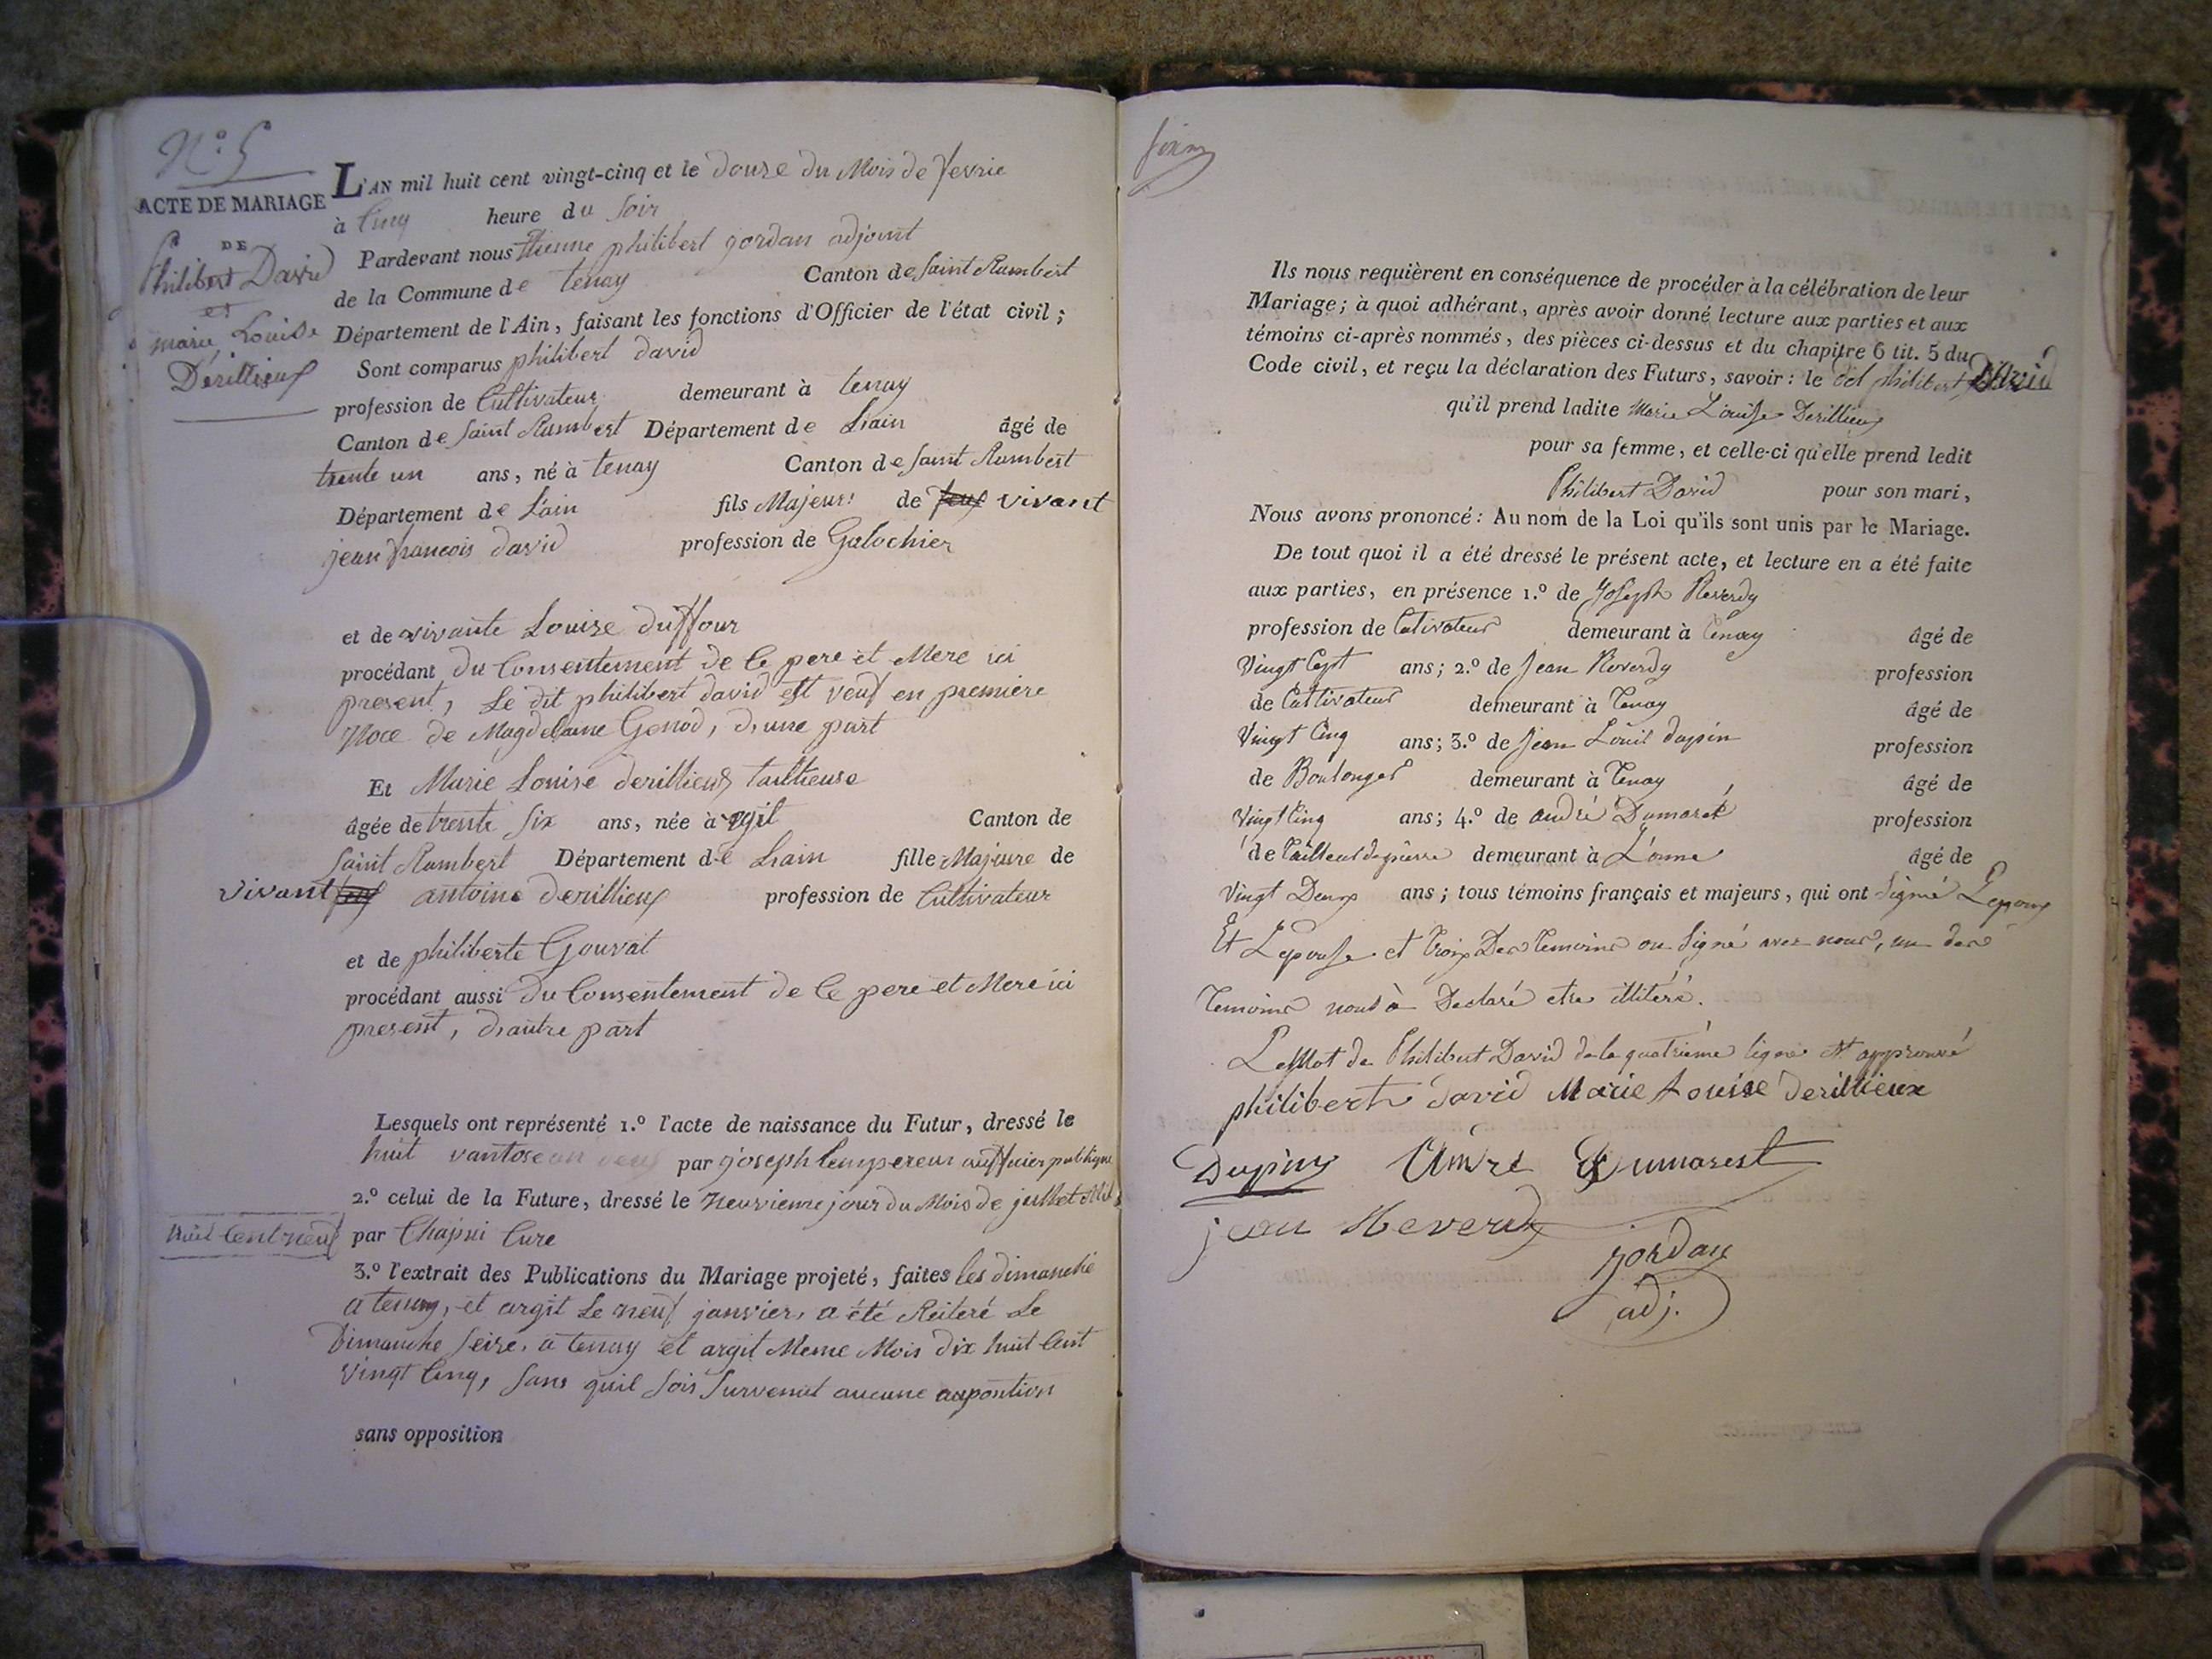 N.° 5
ACTE DE MARIAGE
DE
Philibert David
et
marie Louise
Dérillieux
L'AN mil huit cent vingt-cinq et le douze du Mois de fevrie
à Cinq heure du Soir
Pardevant nous Etienne philibert jordan adjoint
de la Commune de tenay Canton de Saint Rambert
Département de l'Ain, faisant les fonctions d'Officier de l'état civil;
Sont comparus philibert david
profession de Cultivateur demeurant à tenay
Canton de Saint Rambert Département de Lain âgé de
trente un ans, né à tenay Canton de Saint Rambert
Département de Lain fils Majeur de feux vivant
jean francois david profession de Galochier
et de vivante Louise duffour
procédant du Consentement de Ce pere et Mere ici
present, Le dit philibert david est veuf en premiere
Noce de Magdelaine Genod, d'une part
Et Marie Louise derillieux tailleuse
âgée de trente Six ans, née à argit Canton de
Saint Rambert Département de Lain fille Majeure de
vivant feux antoine derillieux profession de Cultivateur
et de philiberte Gouvat
procédant aussi du Consentement de Ce pere et Mere ici
present, d'autre part
Lesquels ont représenté 1.° l'acte de naissance du Futur, dressé le
huit vantose an deux par joseph Lempereur aufficier publique
2.° celui de la Future, dressé le neuvieme jour du Mois de juillet Mil
huit Cent neuf par Chapui Cure
3.° l'extrait des Publications du Mariage projeté, faites les dimanche
a tenay, et argit Le neuf janvier, a été Reiteré Le
Dimanche Seize, a tenay et argit Meme Mois dix huit Cent
vingt Cinq, Sans quil Sois Survenut aucune auposition
sans opposition
Ils nous requièrent en conséquence de procéder à la célébration de leur
Mariage; à quoi adhérant, après avoir donné lecture aux parties et aux
témoins ci-après nommés, des pièces ci-dessus et du chapitre 6 tit. 5 du
Code civil, et reçu la déclaration des Futurs, savoir: le dit philibert David
qu'il prend ladite Marie Louise Derillieux
pour sa femme, et celle-ci qu'elle prend ledit
Philibert David pour son mari,
Nous avons prononcé: Au nom de la Loi qu'ils sont unis par le Mariage.
De tout quoi il a été dressé le présent acte, et lecture en a été faite
aux parties, en présence 1.° de Joseph Reverdy
profession de Cultivateur demeurant à Tenay âgé de
Vingt Cept ans; 2.° de Jean Reverdy profession
de Cultivateur demeurant à Tenay âgé de
Vingt Cinq ans; 3.° de Jean Louis dupin profession
de Boulanger demeurant à Tenay âgé de
Vingt Cinq ans; 4.° de andré Dumarêt profession
de Tailleur de pierre demeurant à âgé de
Vingt Deux ans; tous témoins français et majeurs, qui ont Signé Lepoux
Et Lepouse et Trois Des Temoins on Signé avec nous, un des
Temoins nous à Declaré etre illiteré.
Le Mot de Philibert David de la quatriéme ligne est approuvé
philibert david Marie Louise derillieux
Dupin André Dumarest
jean Reverdy
jordan
adj.